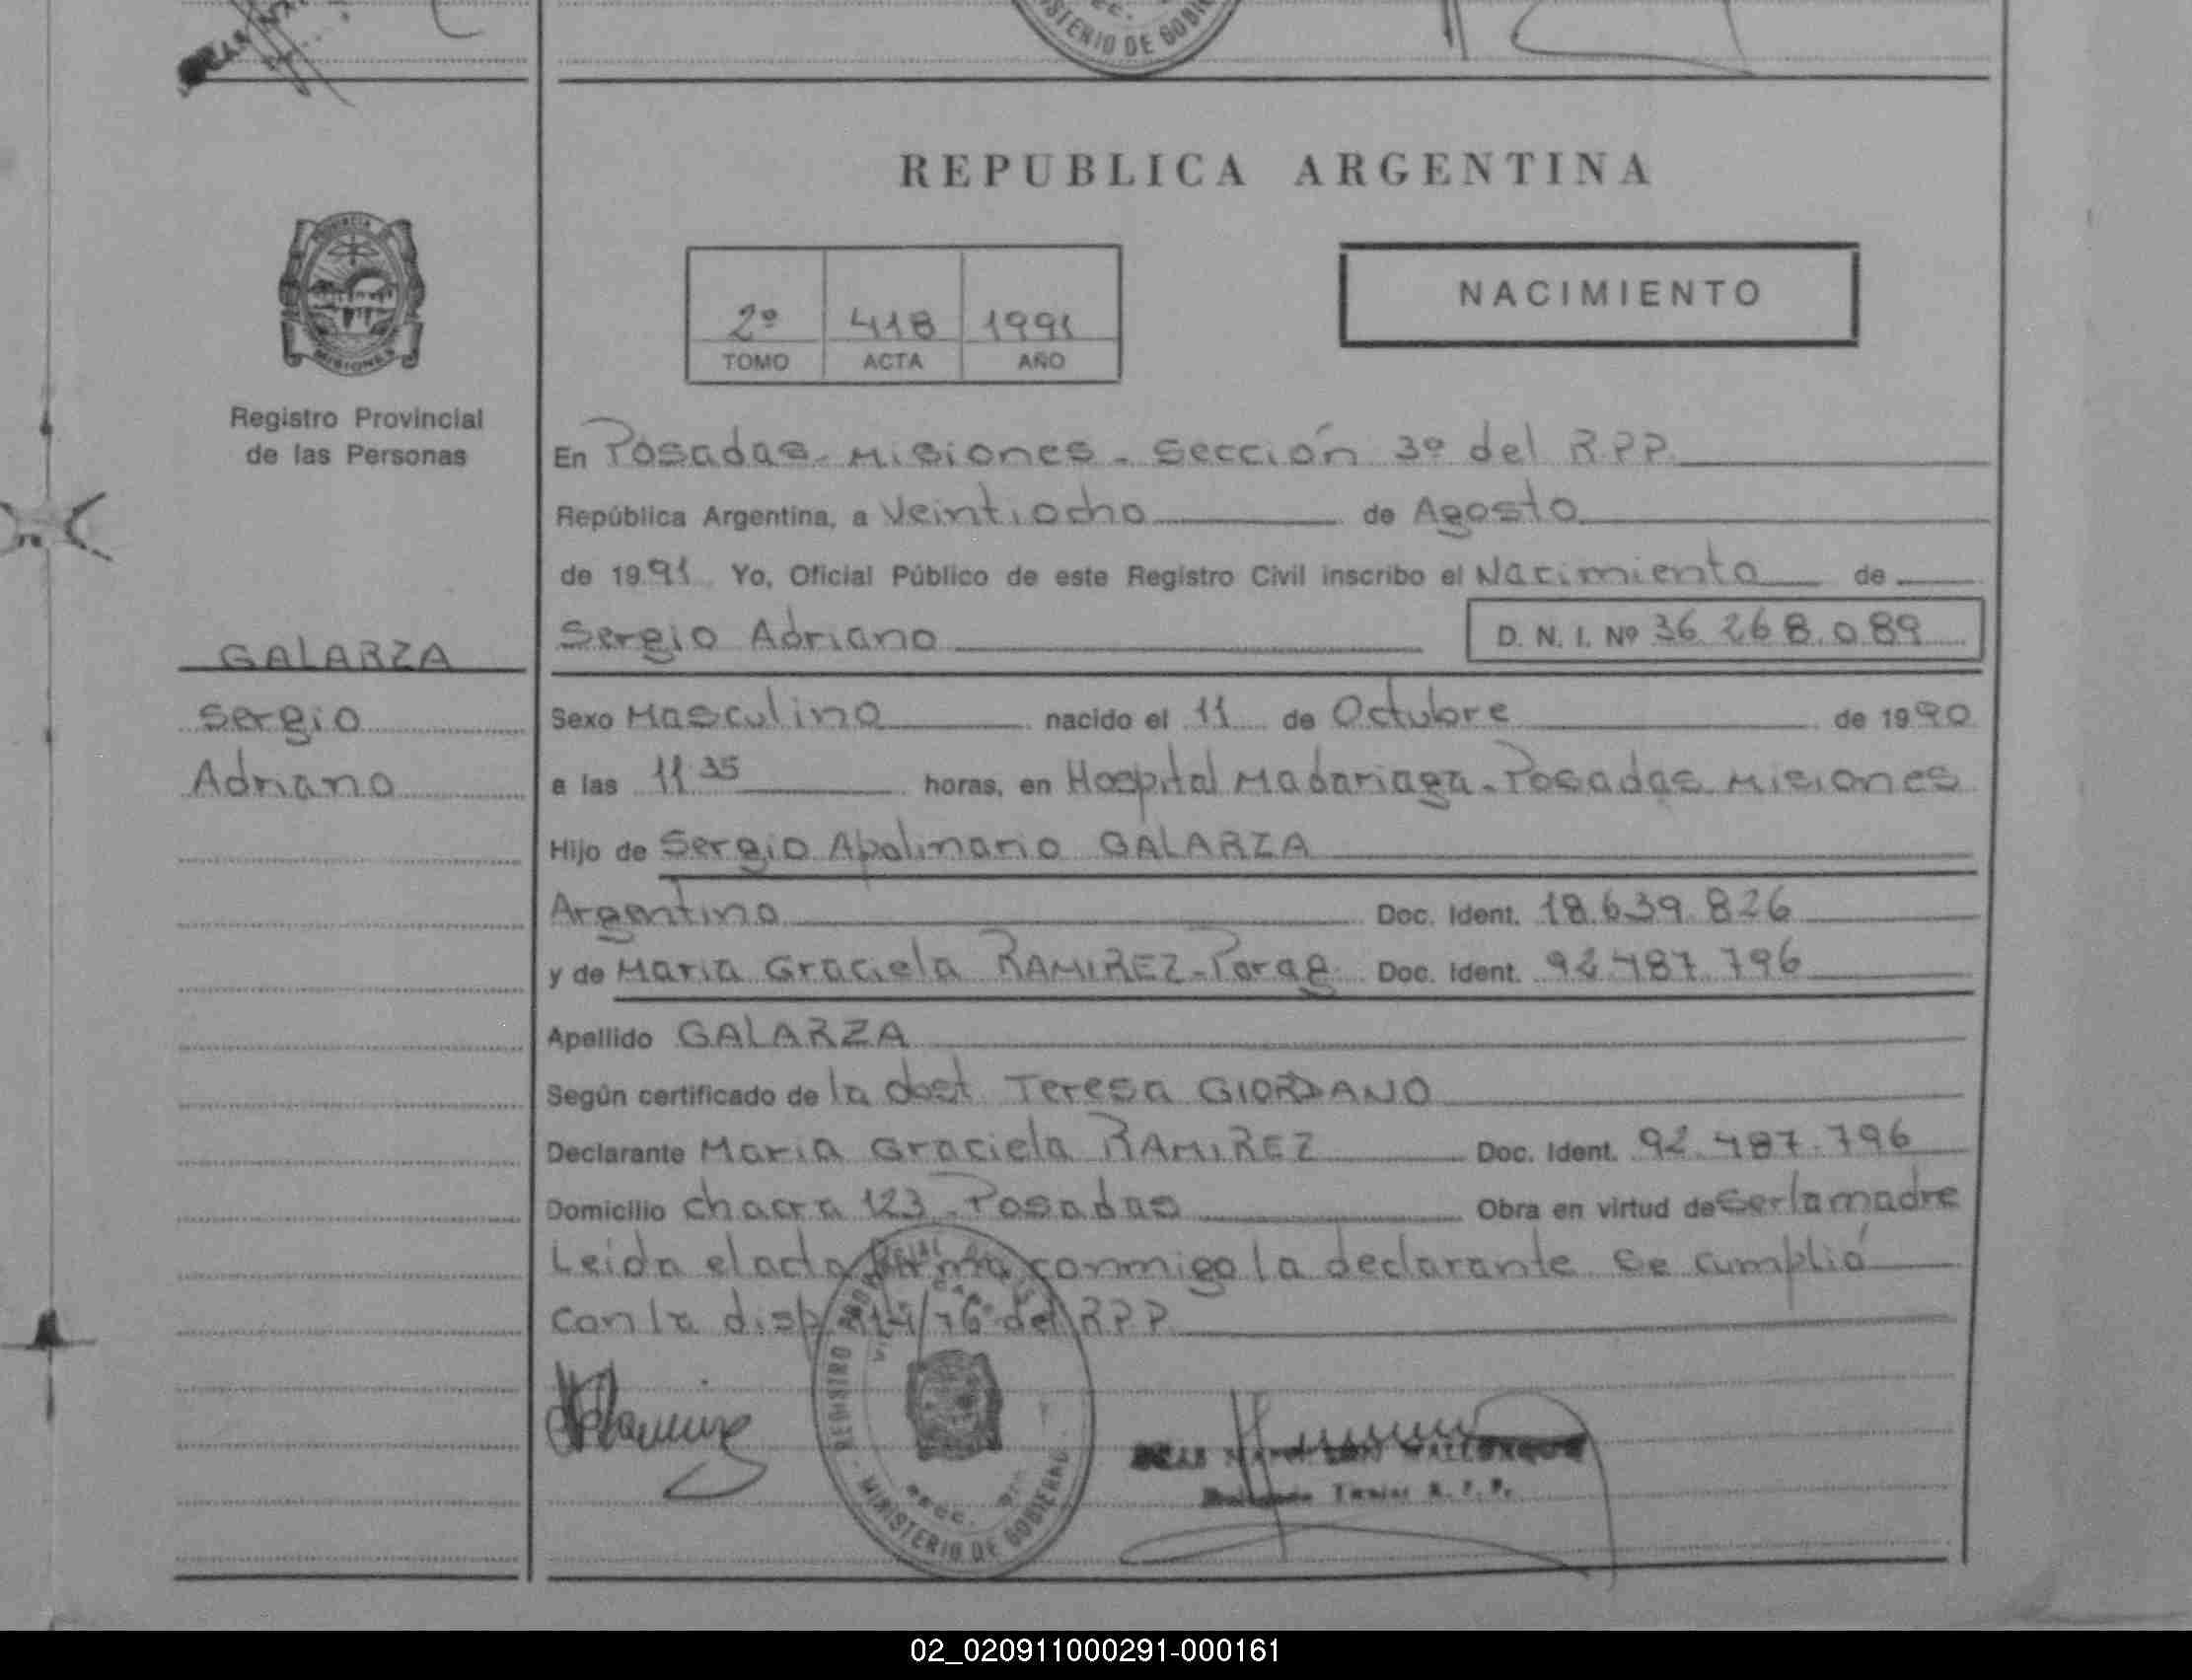 MINISTERIO DE GOBIERNO
REPUBLICA ARGENTINA
MISIONES
Registro Provincial
de las Personas
2º 418 1991
TOMO ACTA AÑO
NACIMIENTO
En Posadas - Misiones - Sección 3º del R.P.P.
República Argentina, a Veintiocho de Agosto
de 1991 Yo, Oficial Público de este Registro Civil inscribo el Nacimiento de
GALARZA
Sergio Adriano D. N. I. Nº 36.268.089
Sergio
Adriano
Sexo Masculino nacido el 11 de Octubre de 1990
a las 11 35 horas, en Hospital Madariaga - Posadas Misiones
Hijo de Sergio Apolinario GALARZA
Argentino Doc. Ident. 18.639.826
y de Maria Graciela RAMIREZ - Parag. Doc. Ident. 92.487.796
Apellido GALARZA
Según certificado de la obst. Teresa GIORDANO
Declarante Maria Graciela RAMIREZ Doc. Ident. 92.487.796
Domicilio chacra 123 - Posadas Obra en virtud de ser la madre
Leida el acta firma conmigo la declarante se cumplió
con la disp. 214/76 del R.P.P.
REGISTRO
MINISTERIO DE GOBIERNO
R. P. P.
02_020911000291-000161